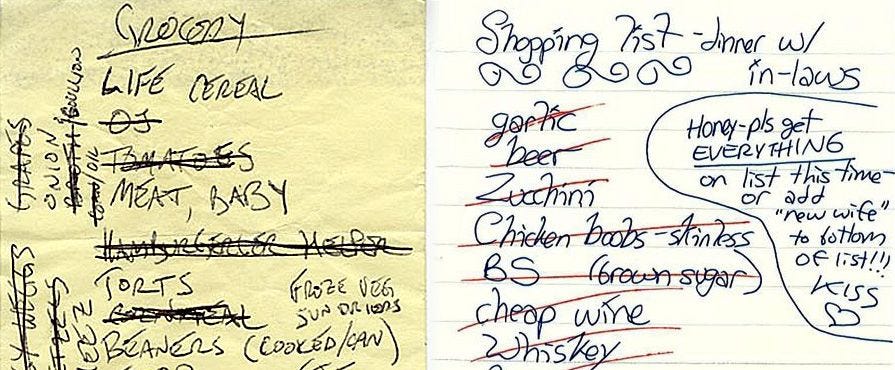 GROCERY
LIFE CEREAL
OJ
TOMATOES
MEAT, BABY
HAMBURGERLER HELPER
TORTS
FROZE VEG
SUN DRIODS
BEANERS (COOKED/CAN)
GRAPES
ONION
BROTH/BOUILLON
CORN/OIL
Shopping list - dinner w/
in-laws
garlic
beer
Zucchini
Chicken boobs - skinless
BS (brown sugar)
cheap wine
Whiskey
Honey - pls get
EVERYTHING
on list this time -
or add
"new wife"
to bottom
of list!!!
KISS